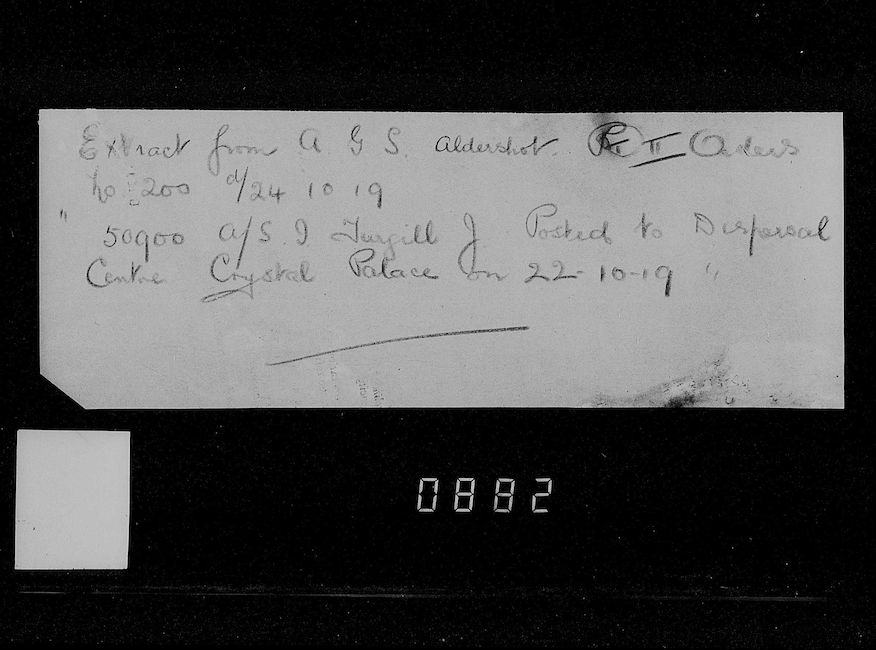 Extract from A G S. Aldershot. Pt II Orders
No 200 d/24 10 19
" 50900 A/S. I Turgill J Posted to Dispersal
Centre Crystal Palace on 22-10-19 "
0882